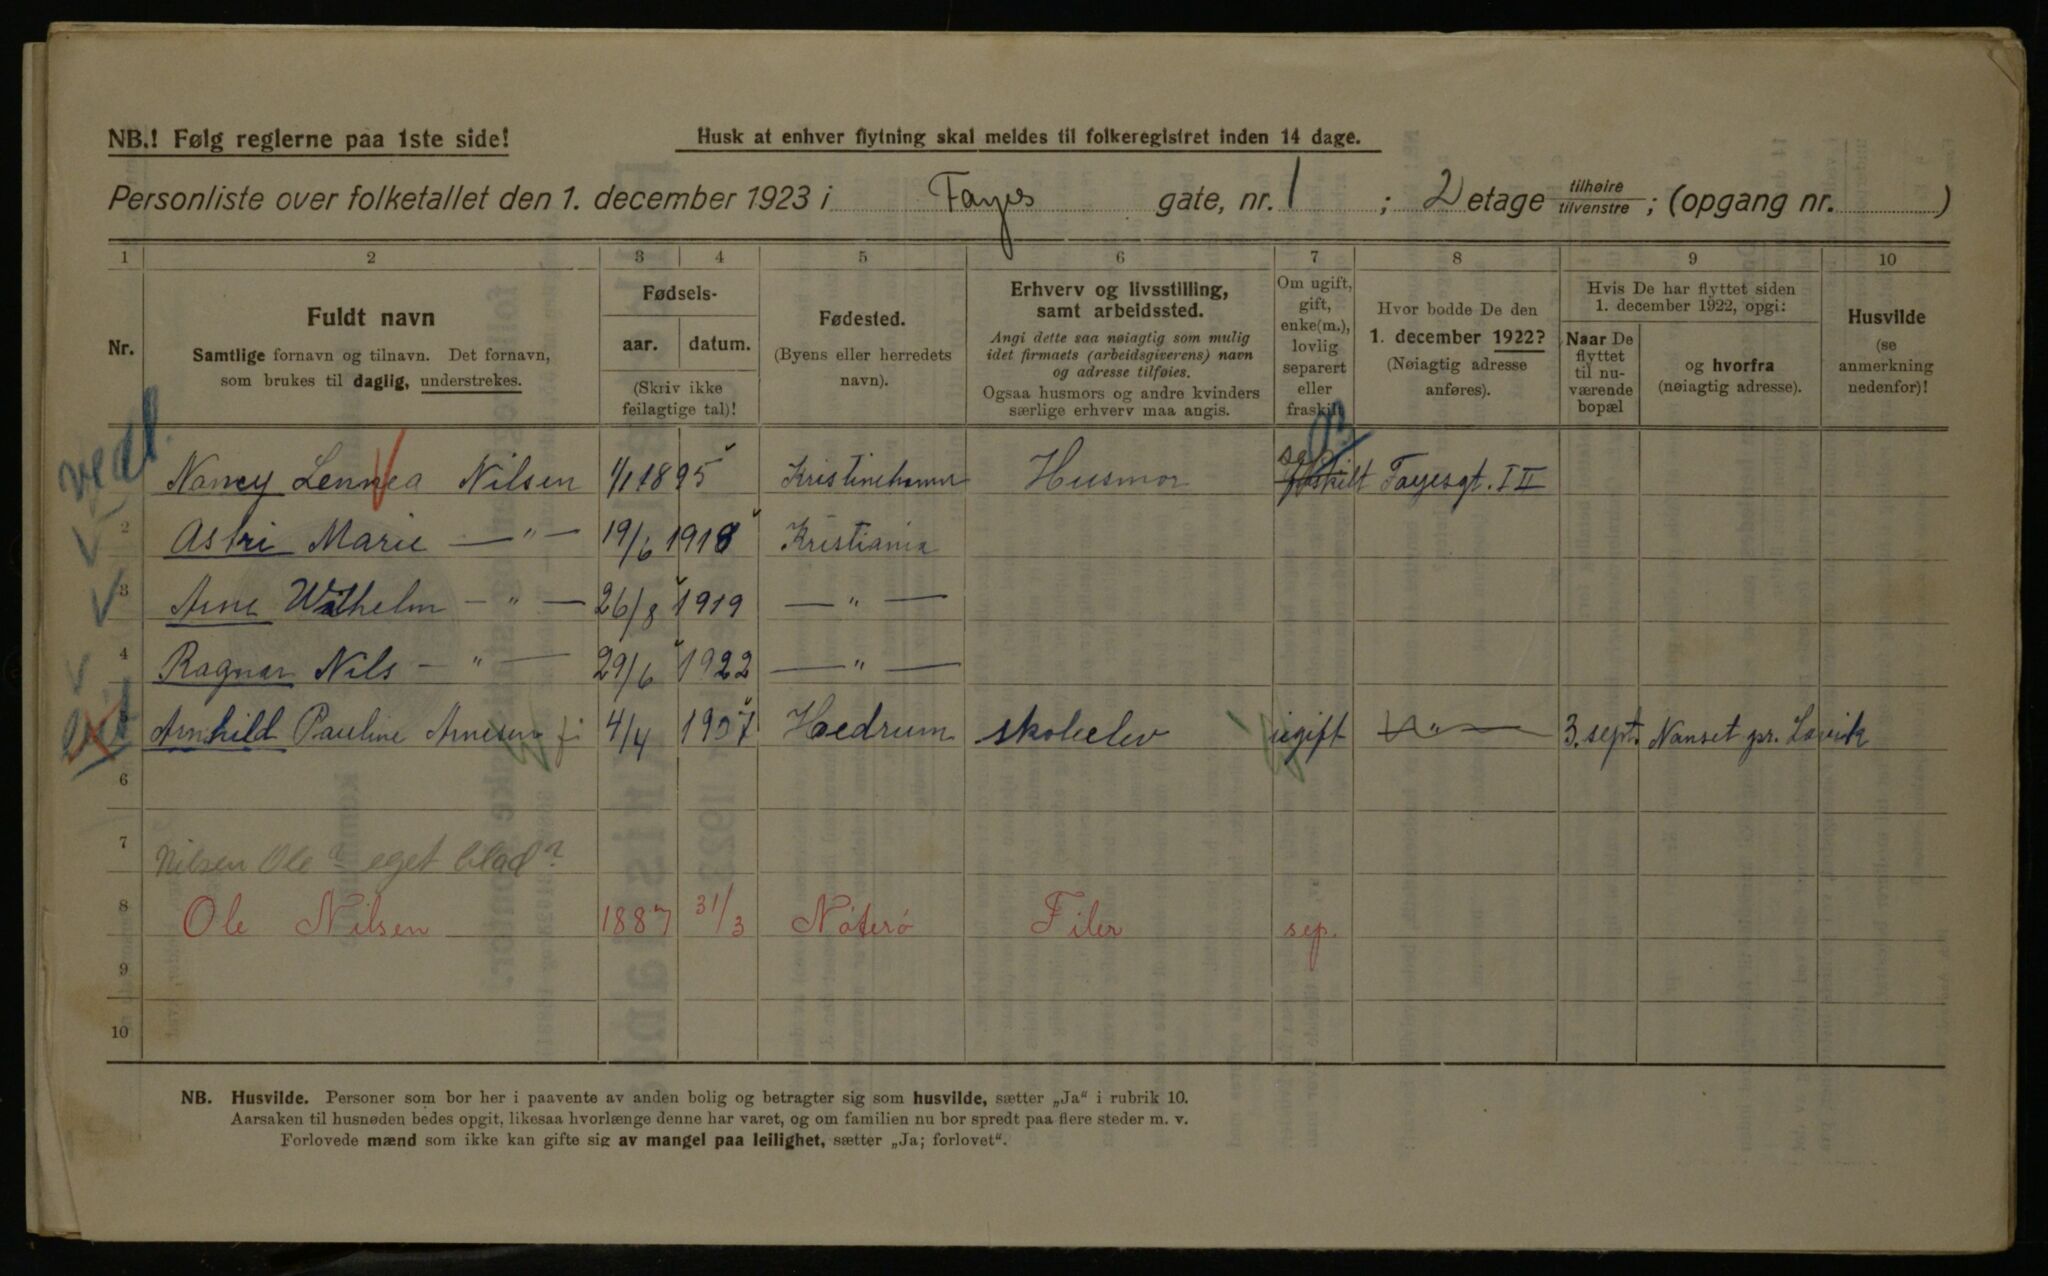 NB.! Følg reglerne paa 1ste side!
Husk at enhver flytning skal meldes til folkeregistret inden 14 dage.
Personliste over folketallet den 1. december 1923 i Fayes gate, nr. 1 ; 2 etage tilhøire tilvenstre ; (opgang nr. )
1 2 3 4 5 6 7 8 9 10
Nr.
Fuldt navn
Samtlige fornavn og tilnavn. Det fornavn,
som brukes til daglig, understrekes.
Fødsels-
aar. datum.
(Skriv ikke
feilagtige tal)!
Fødested.
(Byens eller herredets
navn).
Erhverv og livsstilling,
samt arbeidssted.
Angi dette saa nøiagtig som mulig
idet firmaets (arbeidsgiverens) navn
og adresse tilføies.
Ogsaa husmors og andre kvinders
særlige erhverv maa angis.
Om ugift,
gift,
enke(m.),
lovlig
separert
eller
fraskilt
Hvor bodde De den
1. december 1922?
(Nøiagtig adresse
anføres).
Hvis De har flyttet siden
1. december 1922, opgi:
Naar De
flyttet
til nu-
værende
bopæl
og hvorfra
(nøiagtig adresse).
Husvilde
(se
anmerkning
nedenfor)!
Nancy Lennea Nilsen 1/1 1895 Kristinehamn Husmor Fayesgt. 1 II
2 Astri Marie — " — 19/6 1918 Kristiania
3 Arne Wilhelm — " — 26/8 1919 — " —
4 Ragnar Nils — " — 29/6 1922 — " —
5 Arnhild Pauline Arnesen 4/4 1907 Hedrum skoleelev ugift — " — 3. sept. Nanset pr. Larvik
6
7 Nilsen Ole? eget blad?
8 Ole Nilsen 1887 31/3 Nøterø Filer sep.
9
10
NB. Husvilde. Personer som bor her i paavente av anden bolig og betragter sig som husvilde, sætter „Ja" i rubrik 10.
Aarsaken til husnøden bedes opgit, likesaa hvorlænge denne har varet, og om familien nu bor spredt paa flere steder m. v.
Forlovede mænd som ikke kan gifte sig av mangel paa leilighet, sætter „Ja; forlovet".